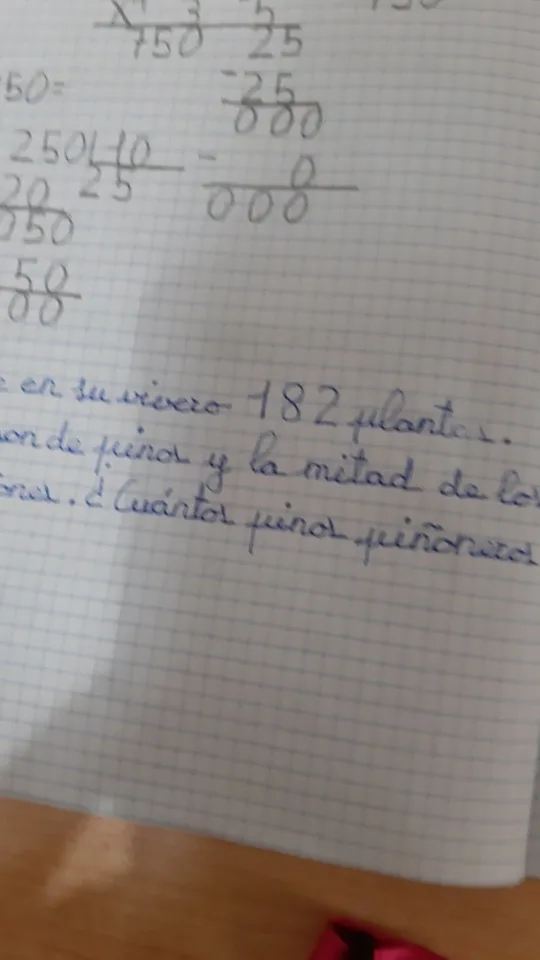 x 3 5
750 25
50= -25
000
250 10 - 0
20 25 000
050
50
00
en su vivero 182 plantas.
on de pinos y la mitad de los
¿Cuántos pinos piñoneros